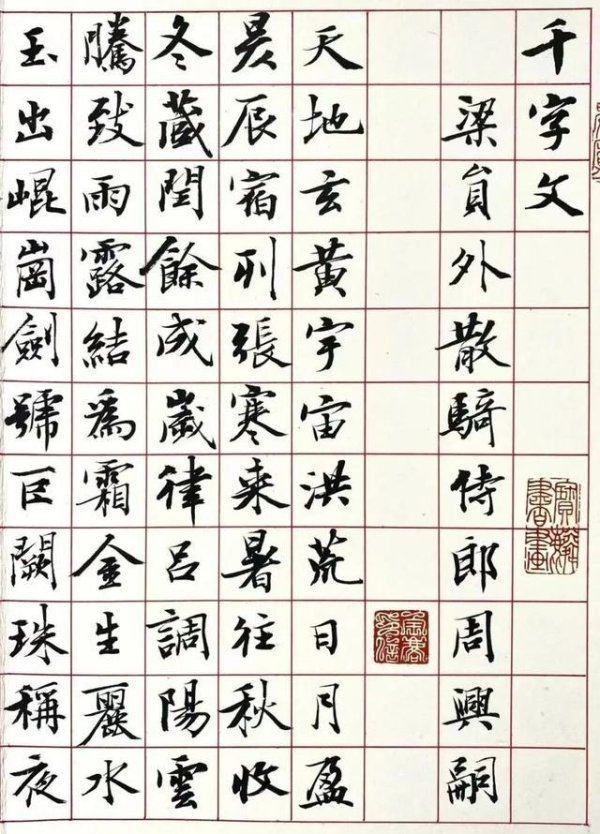 千字文
梁員外散騎侍郎周興嗣
天地玄黃宇宙洪荒日月盈
昃辰宿列張寒来暑往秋收
冬藏閏餘成歲律呂調陽雲
騰致雨露結爲霜金生麗水
玉出崐崗劍號巨闕珠稱夜